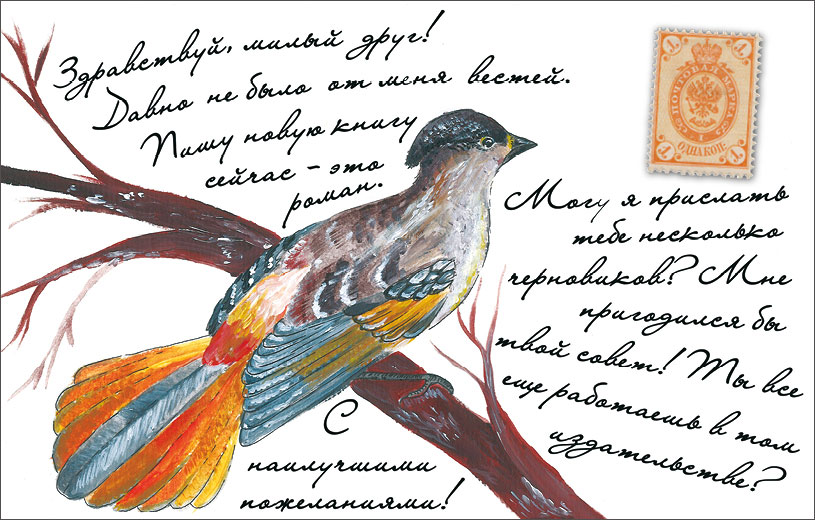 Здравствуй, милый друг!
Давно не было от меня вестей.
Пишу новую книгу
сейчас – это
роман.
Могу я прислать
тебе несколько
черновиков? Мне
пригодился бы
твой совет! Ты все
еще работаешь в том
издательстве?
С
наилучшими
пожеланиями!
1 1
ПОЧТОВАЯ МАРКА
1
ОДНА КОП.
1 1